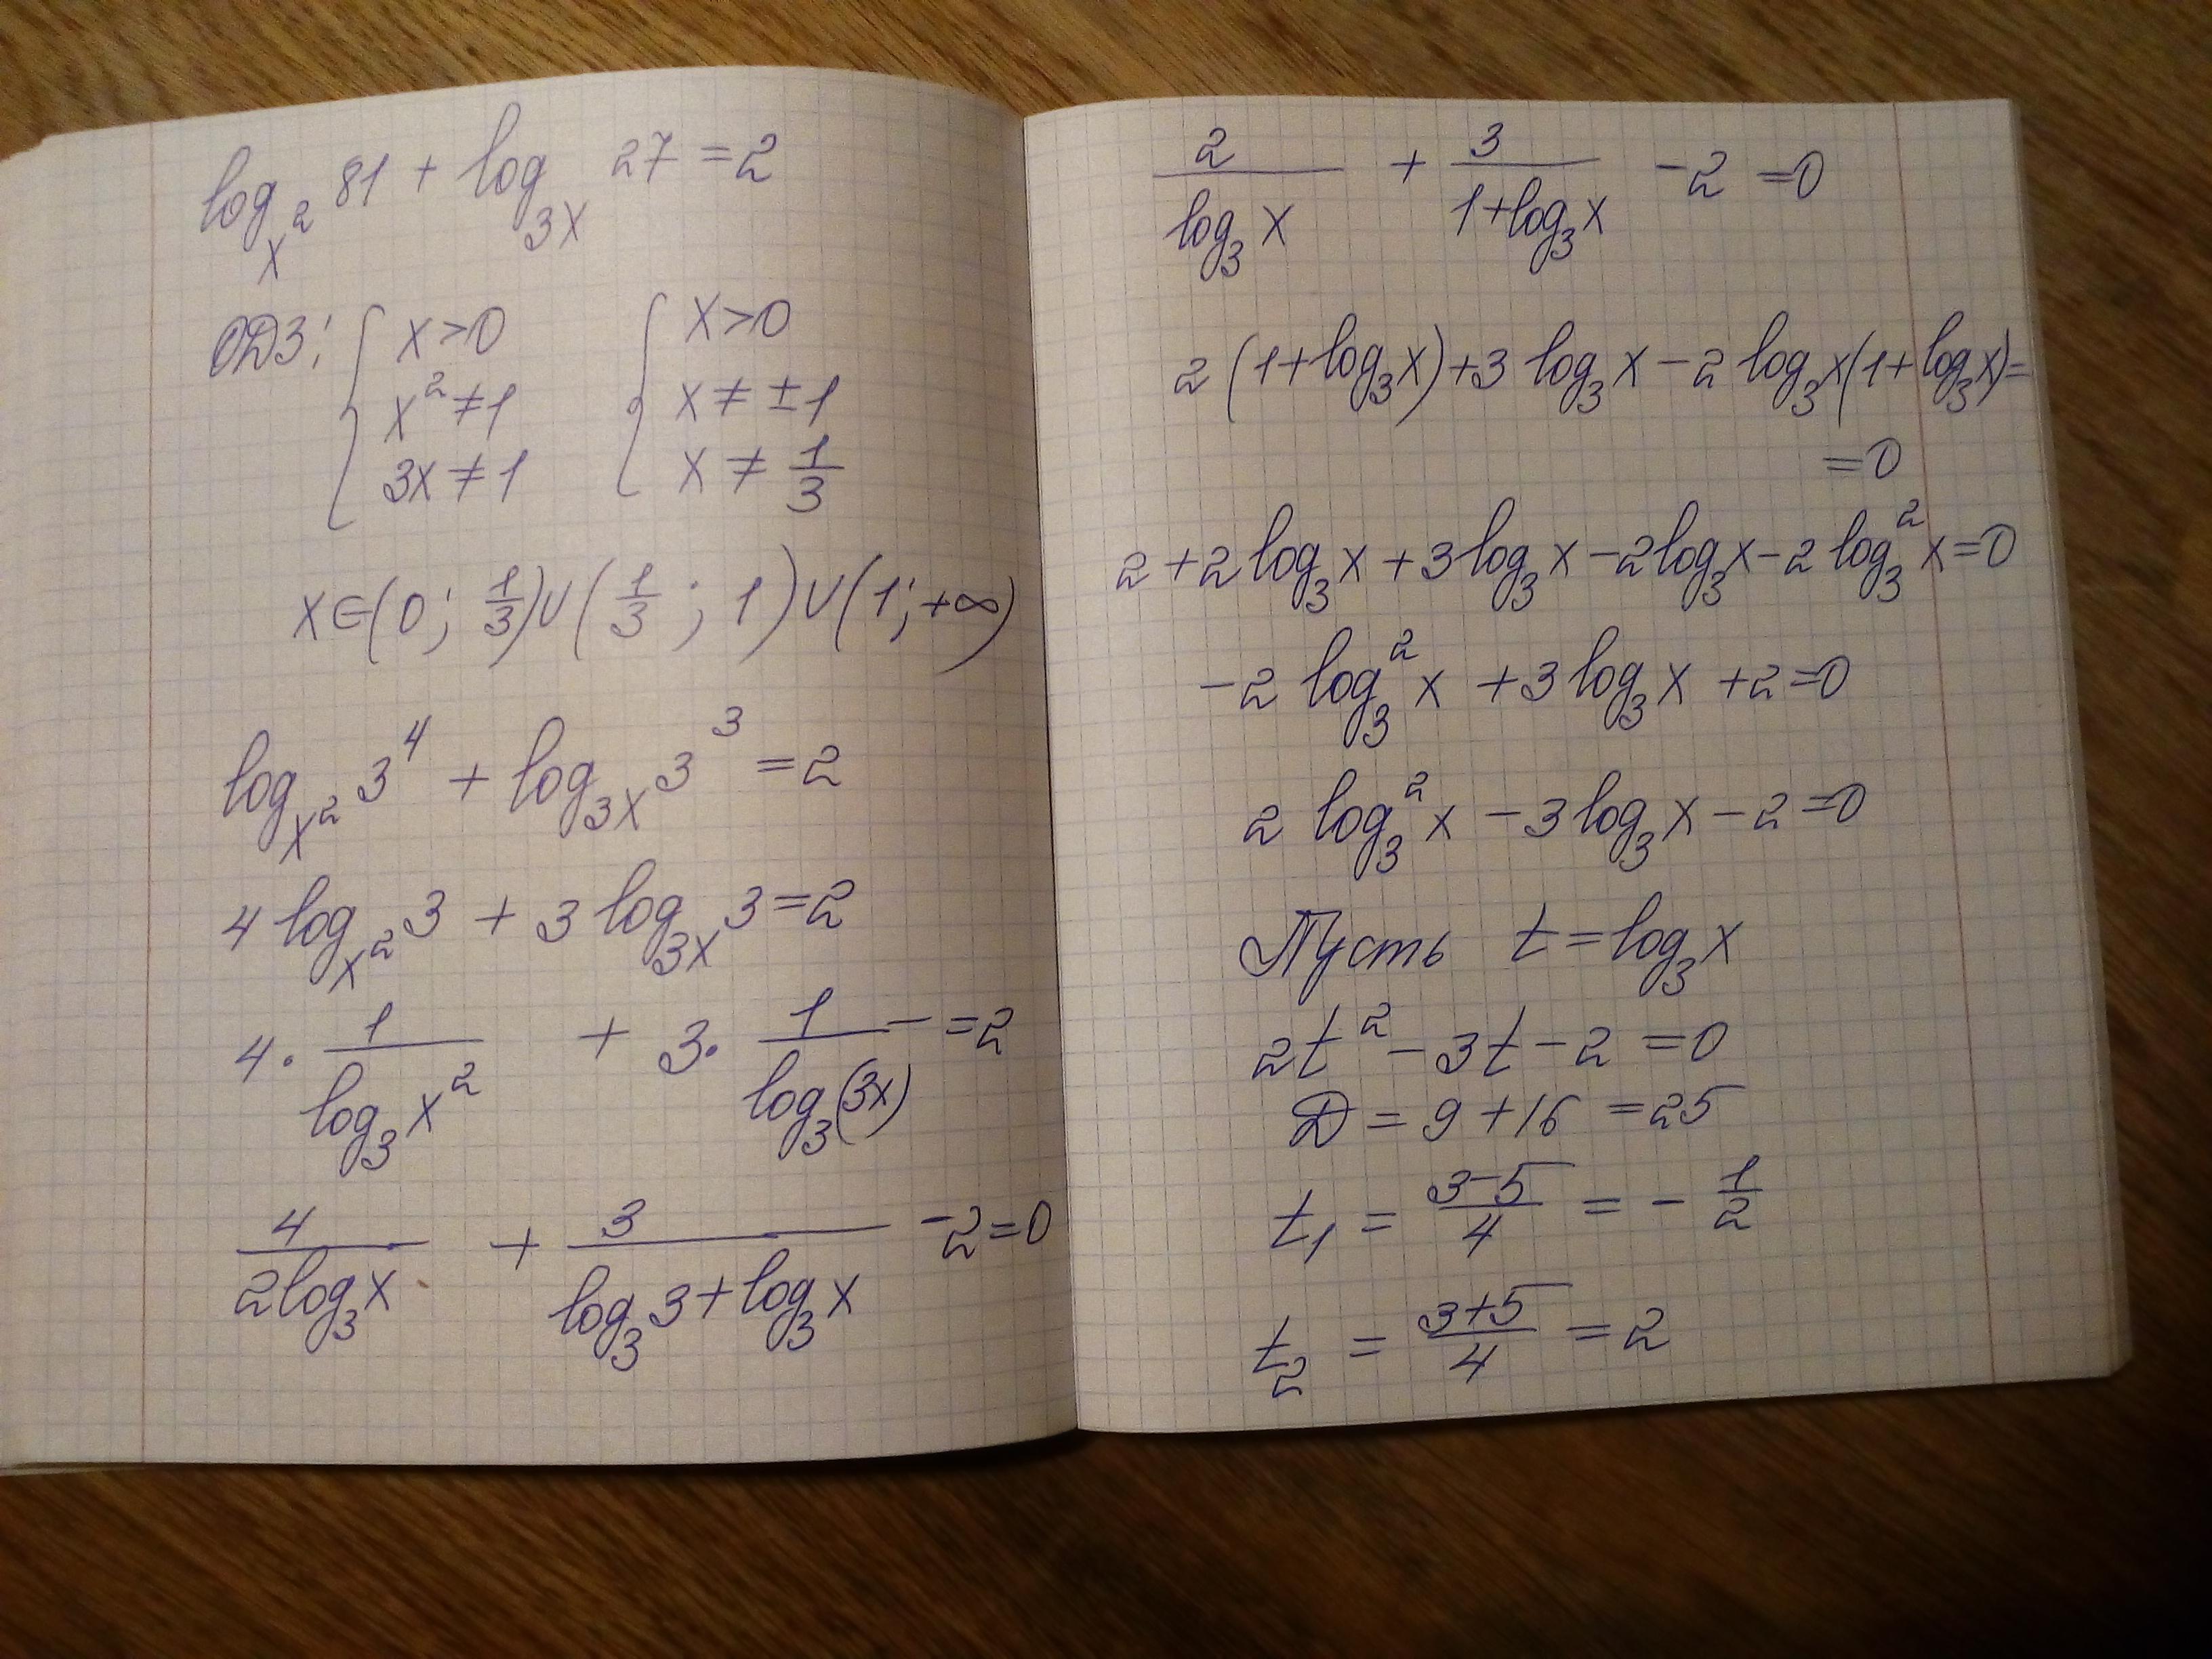 log_{x^2} 81 + log_{3x} 27 = 2
ОДЗ: { x > 0 { x > 0
x^2 ≠ 1 x ≠ ±1
3x ≠ 1 x ≠ 1/3
x ∈ (0; 1/3) ∪ (1/3; 1) ∪ (1; +∞)
log_{x^2} 3^4 + log_{3x} 3^3 = 2
4 log_{x^2} 3 + 3 log_{3x} 3 = 2
4 · 1/(log_3 x^2) + 3 · 1/(log_3 (3x)) = 2
4/(2 log_3 x) + 3/(log_3 3 + log_3 x) - 2 = 0
2/(log_3 x) + 3/(1 + log_3 x) - 2 = 0
2 (1 + log_3 x) + 3 log_3 x - 2 log_3 x (1 + log_3 x) =
= 0
2 + 2 log_3 x + 3 log_3 x - 2 log_3 x - 2 log_3^2 x = 0
-2 log_3^2 x + 3 log_3 x + 2 = 0
2 log_3^2 x - 3 log_3 x - 2 = 0
Пусть t = log_3 x
2t^2 - 3t - 2 = 0
D = 9 + 16 = 25
t_1 = (3-5)/4 = - 1/2
t_2 = (3+5)/4 = 2